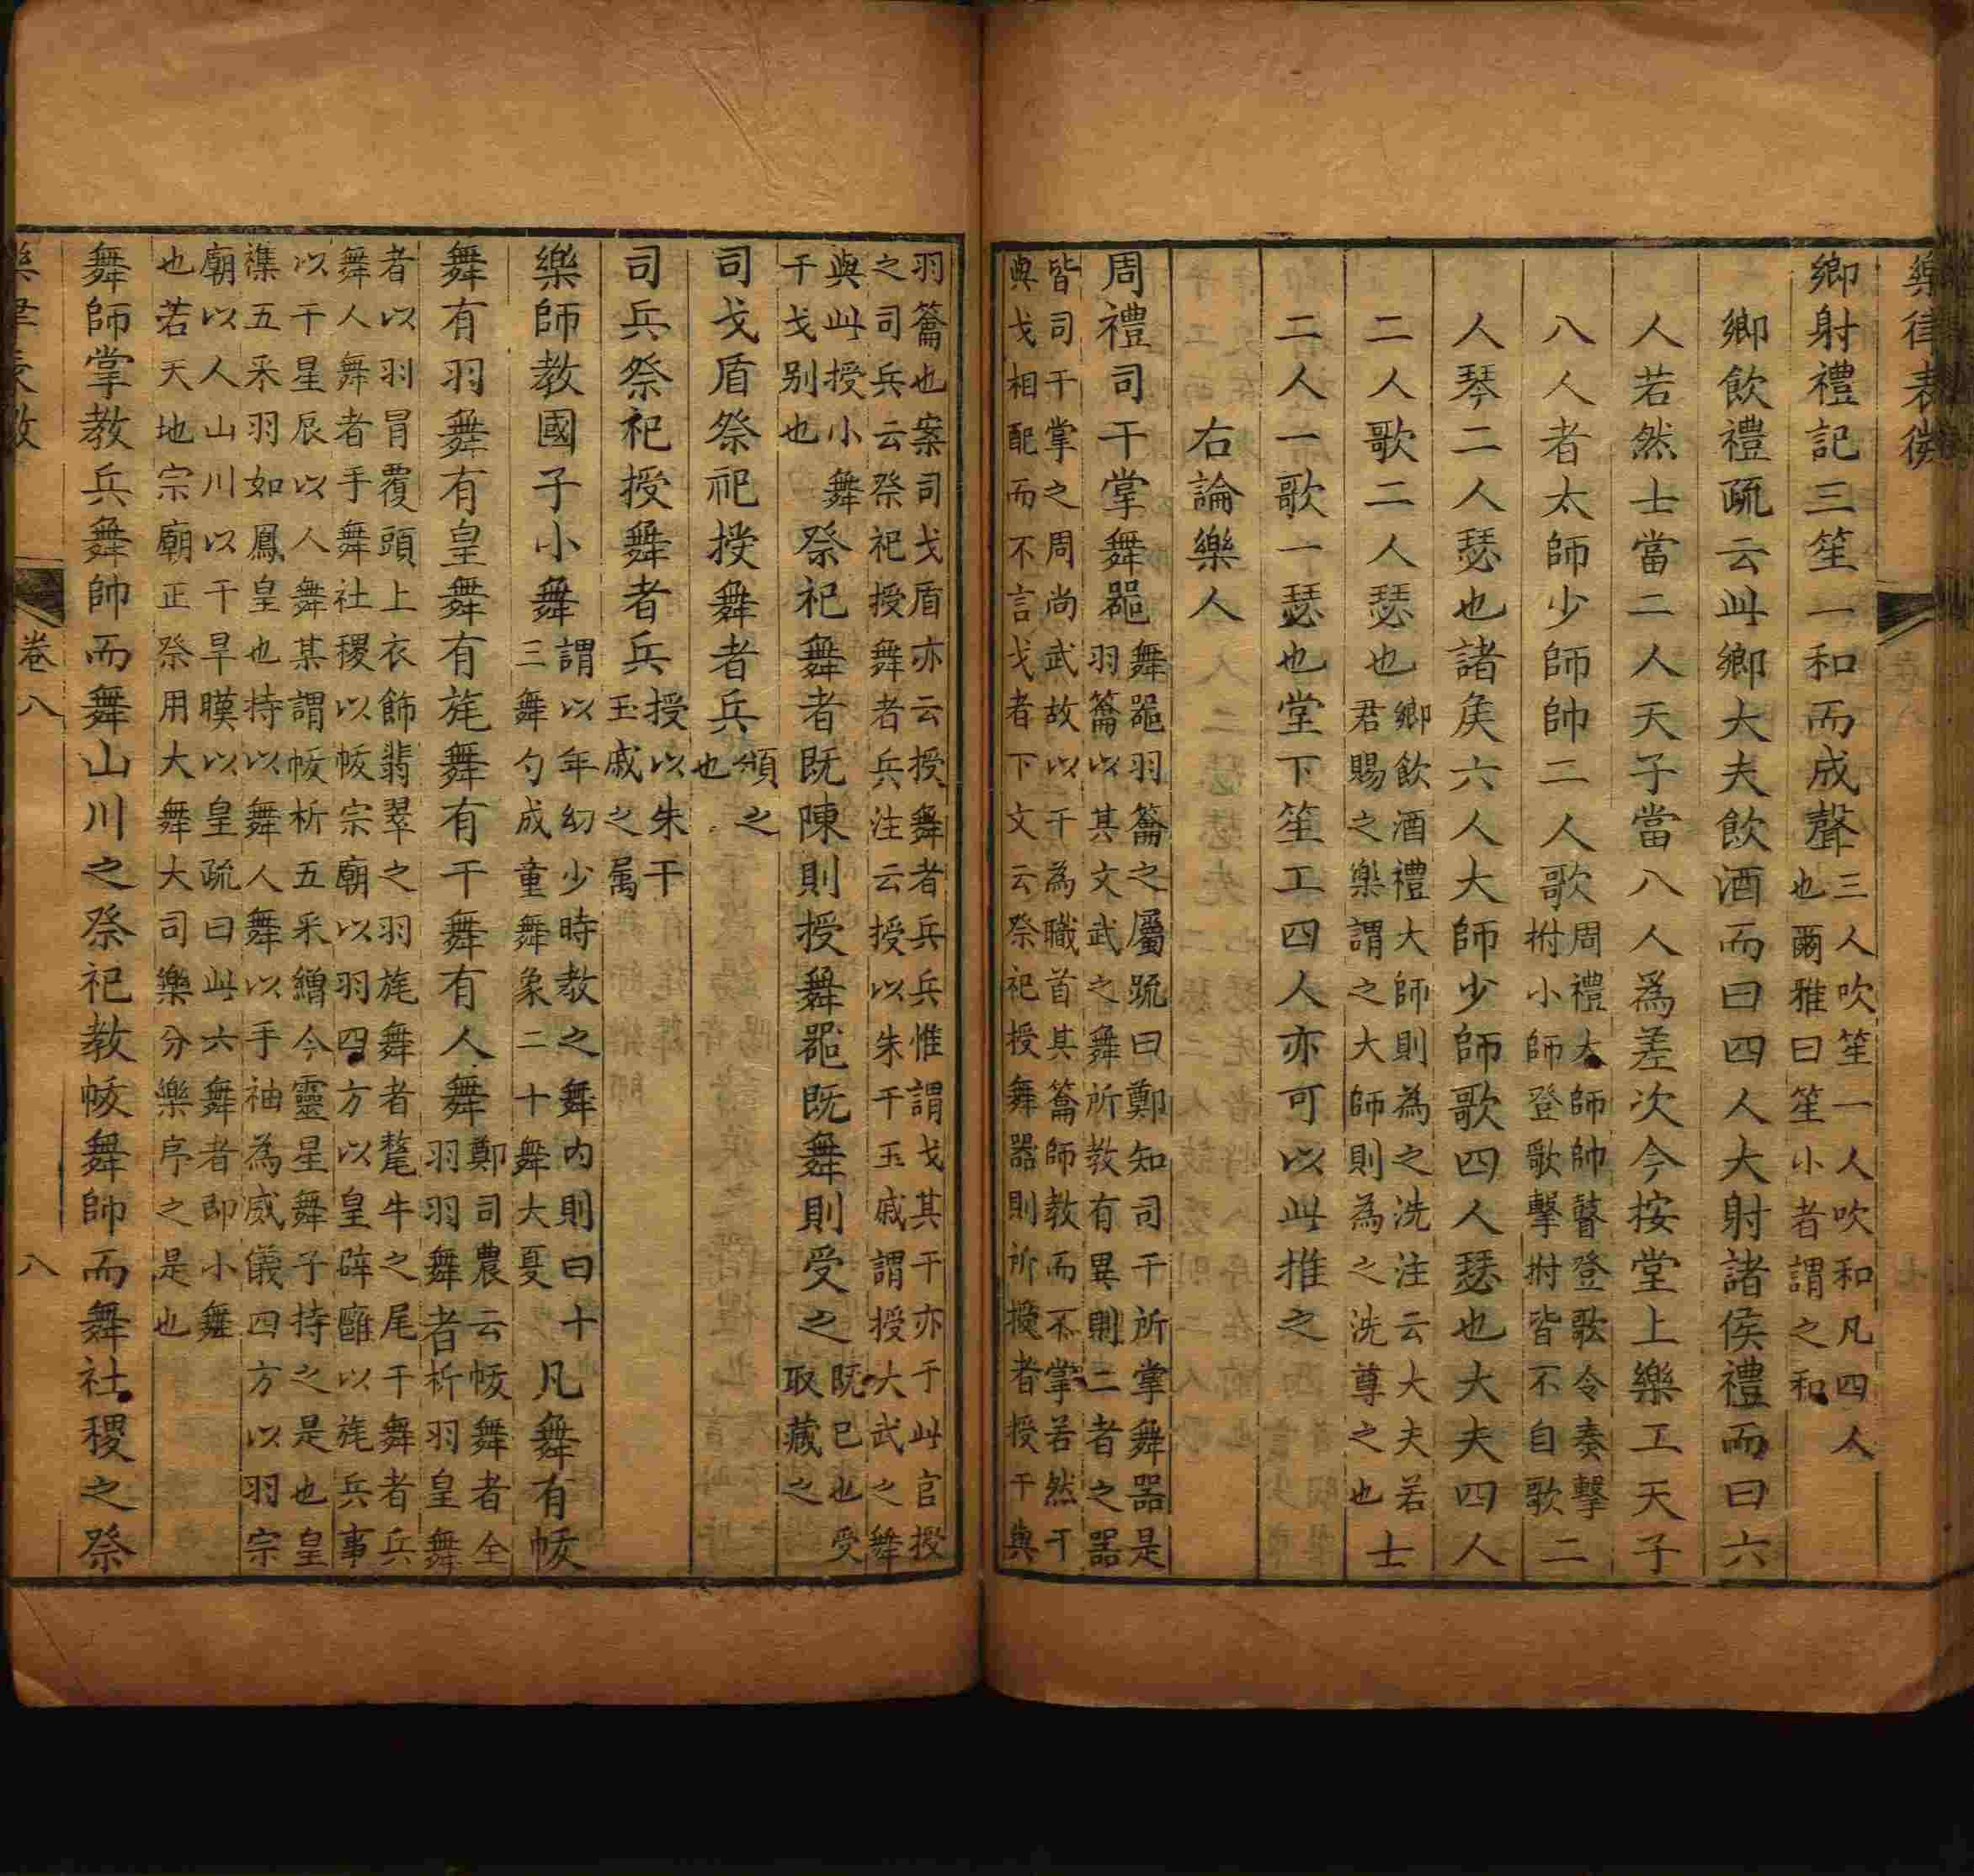 樂律表微
鄉射禮記三笙一和而成聲三人吹笙一人吹和凡四人也爾雅曰笙小者謂之和
鄉飲禮疏云此鄉大夫飲酒而曰四人大射諸侯禮而曰六
人若然士當二人天子當八人爲差次今按堂上樂工天子
八人者太師少師帥二人歌周禮大師帥瞽登歌令奏擊拊小師登歌擊拊皆不自歌二
人琴二人瑟也諸矦六人大師少師歌四人瑟也大夫四人
二人歌二人瑟也鄉飲酒禮大師則為之洗注云大夫若君賜之樂謂之大師則為之洗尊之也士
二人一歌一瑟也堂下笙工四人亦可以此推之
右論樂人
周禮司干掌舞噐舞噐羽籥之屬疏曰鄭知司干所掌舞器是羽籥以其文武之舞所教有異則二者之器
皆司干掌之周尚武故以干為職首其籥師教而不掌若然干與戈相配而不言戈者下文云祭祀授舞器則所授者授干與
羽籥也案司戈盾亦云授舞者兵兵惟謂戈其干亦于此官授之司兵云祭祀授舞者兵注云授以朱干玉戚謂授大武之舞
與此授小舞干戈别也祭祀舞者既陳則授舞噐既舞則受之既已也受取藏之
司戈盾祭祀授舞者兵頒之也
司兵祭祀授舞者兵授以朱干玉戚之属
樂師教國子小舞謂以年幼少時教之舞内則曰十三舞勺成童舞象二十舞大夏凡舞有帗
舞有羽舞有皇舞有旄舞有干舞有人舞鄭司農云帗舞者全羽羽舞者析羽皇舞
者以羽冒覆頭上衣飾翡翠之羽旄舞者氂牛之尾干舞者兵舞人舞者手舞社稷以帗宗廟以羽四方以皇辟廱以旄兵事
以干星辰以人舞某謂帗析五采繒今靈星舞子持之是也皇襍五采羽如鳳皇也持以舞人舞以手袖為威儀四方以羽宗
廟以人山川以干旱暵以皇疏曰此六舞者即小舞也若天地宗廟正祭用大舞大司樂分樂序之是也
舞師掌教兵舞帥而舞山川之祭祀教帗舞帥而舞社稷之祭
卷八
八